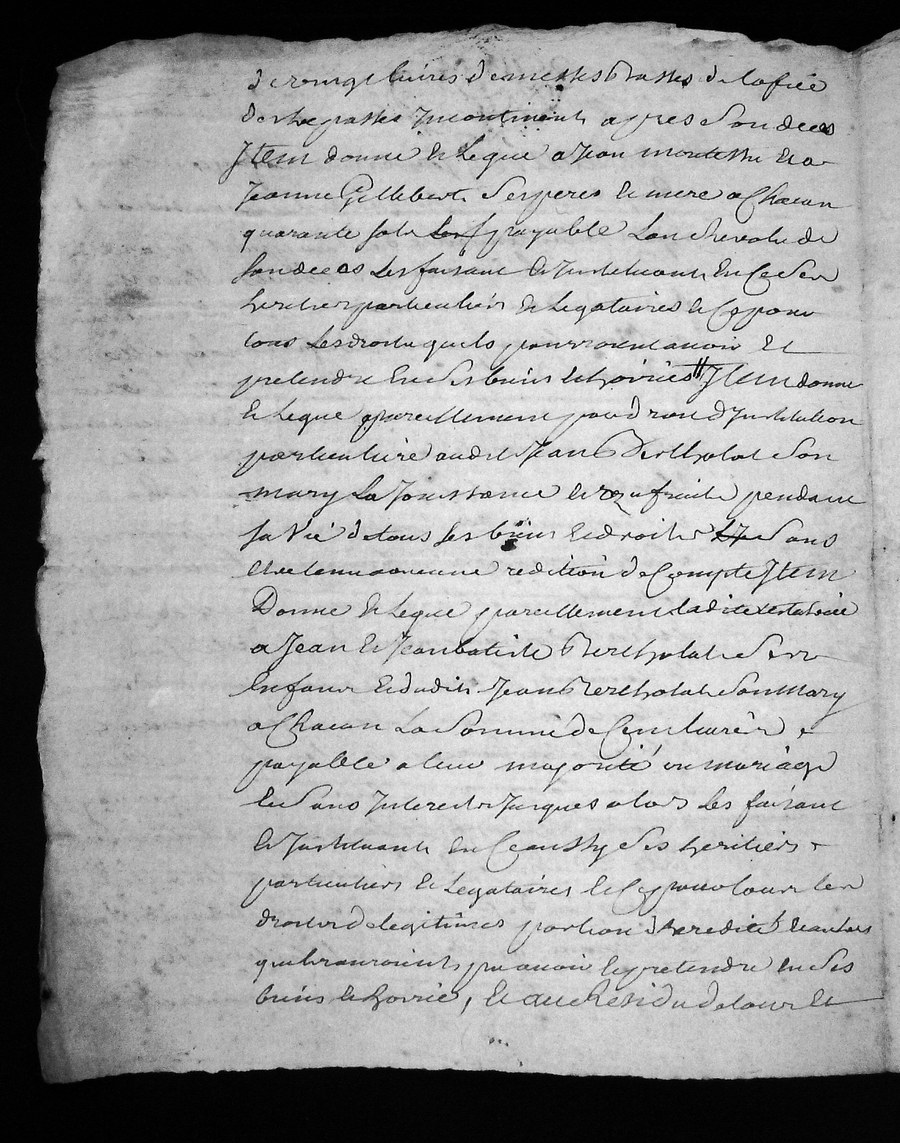 de vingt livres de messes basses de lofice
des trepasses Incontinent apres son deces
Item donne et legue a Jean et a
Jeanne Gillebert ses pere et mere a Chacun
quarante sols payable lan revolu de
son deces les faisant et Instituant en Ce ses
heritiers particuliers et legataires et Ce pour
tous les droits quils pourroient avoir et
pretendre en ses biens et hoirie Item donne
et legue pareillement par droit dInstitution
particuliere audit Jean Bertholat son
mary La Jouissance et uzufruit pendant
sa vie de tous ses biens et droits sans
etre tenu aucune redition de Compte Item
Donne et legue pareillement ladite testatrice
a Jean et Jean batiste Bertholat ses
enfans et dudit Jean Bertholat son mary
a Chacun La somme de Cent livres
payable a leur majorité ou mariage
et sans Interets Jusques alors les faisant
et Instituant en Ce aussy ses heritiers
particuliers et legataires et Ce pour tous les
droits de legitimes portion dheredité et autres
quils pouroient avoir et pretendre en ses
biens et hoirie, et au Residu de tous et